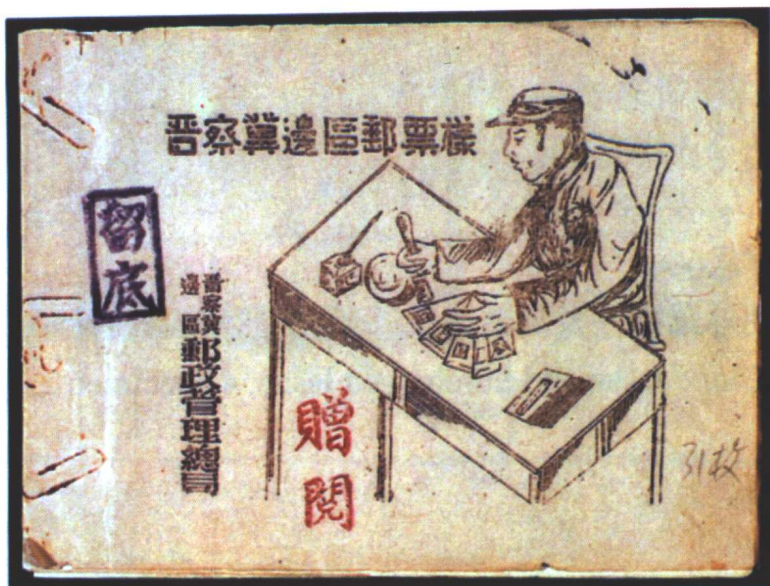 晋察冀邊區郵票樣
留底
晋察冀
邊區
郵政管理總局
贈閱
31枚